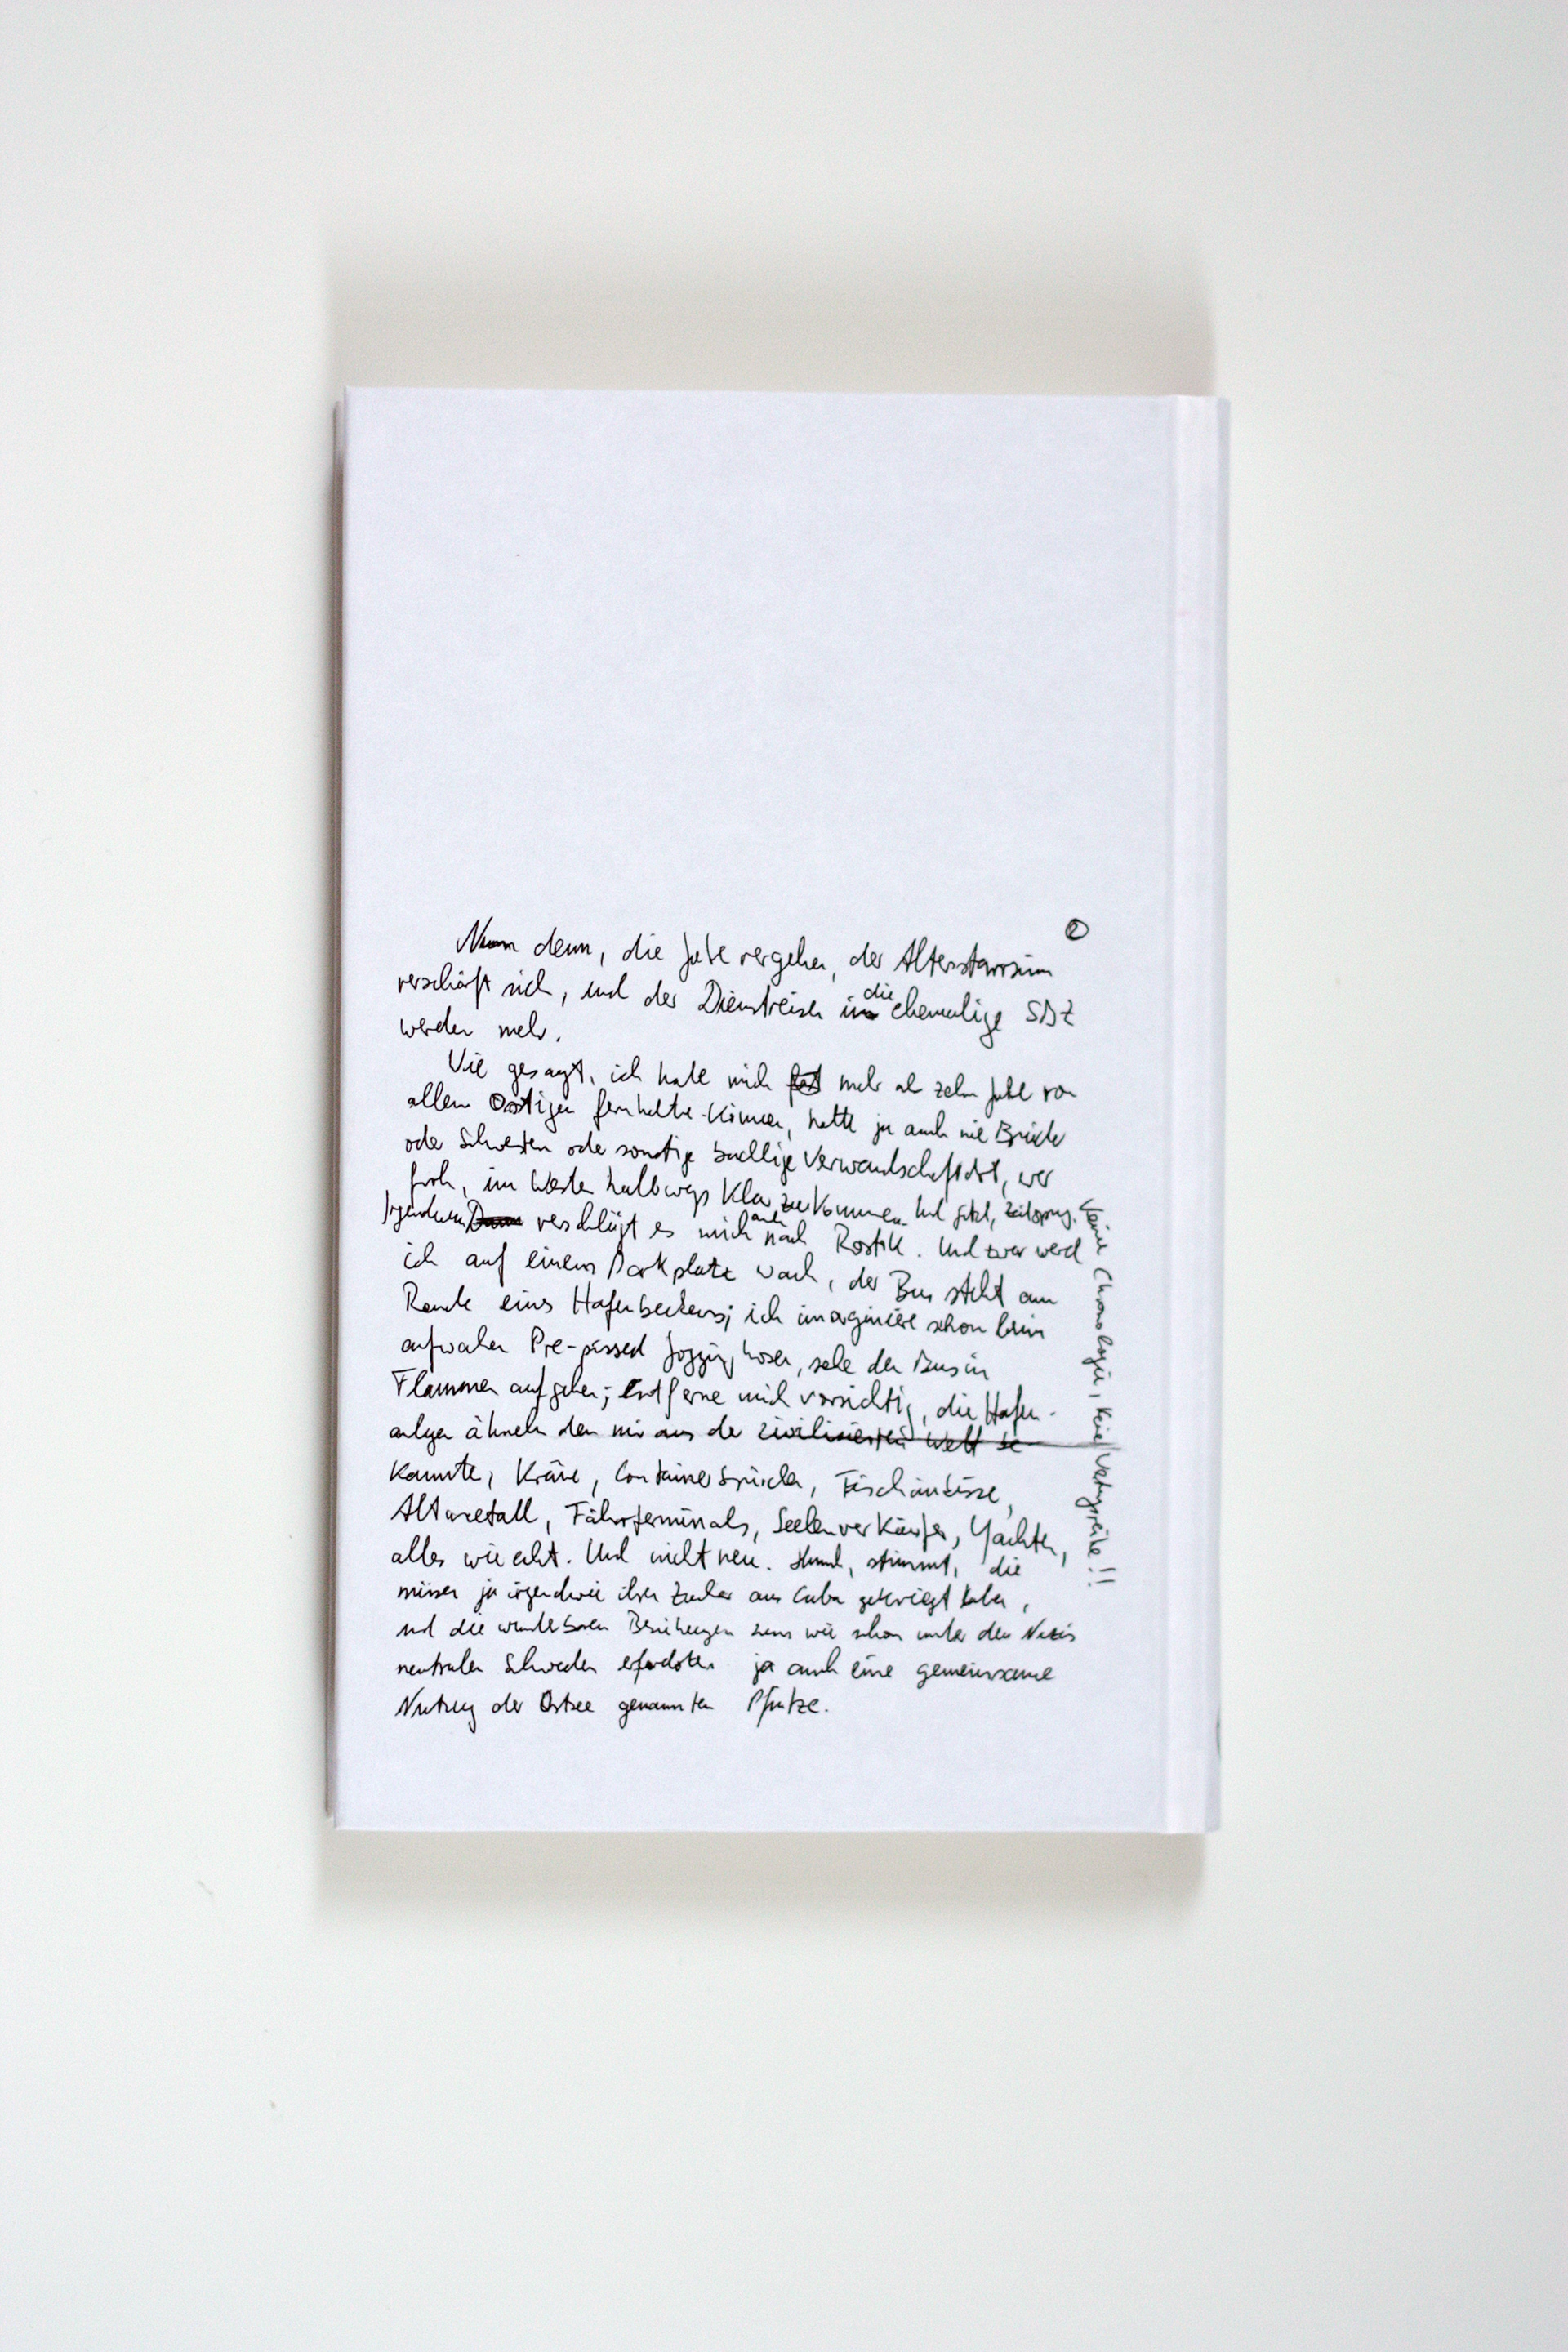 ②
Nun denn, die Jahre vergehen, der Altersstarrsinn
verschärft sich, und der Dienstreisen in die ehemalige SBZ
werden mehr.
Wie gesagt, ich habe mich fast mehr als zehn Jahre von
allem Ostigen fernhalten können, hatte ja auch nie Brüder
oder Schwestern oder sonstige Verwandschaft dort, war
froh, im Westen halbwegs klar zu kommen. Und jetzt, Zeitsprung.
Irgendwann Dann verschlägt es mich auch nach Rostock. Und zwar werd
ich auf einem Parkplatz wach, der Bus steht am
Rande eines Hafenbeckens; ich imaginiere schon beim
aufwachen Pre-pissed Jogginghosen, sehe den Bus in
Flammen aufgehen; entferne mich vorsichtig, die Hafen-
anlagen ähneln den mir aus der zivilisierten Welt be-
kannten, Kräne, Containerbrücken, Fischimbisse,
Altmetall, Fährterminals, Seelenverkäufer, Yachten,
alles wie echt. Und nicht neu. stimmt, die
müssen ja irgendwie ihren Zucker aus Cuba gekriegt haben,
und die wunderbaren Beziehungen zum wie schon unter den Nazis
neutralen Schweden erforderten ja auch eine gemeinsame
Nutzung der Ostsee genannten Pfütze.
Keine Chronologie, kein !!